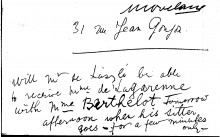 31 rue Jean Goujon
will Mr de László be able
to receive Mme de Lagarenne
with Mme Berthelot Tomorrow
afternoon when his sitter
goes - for a few minutes
only -